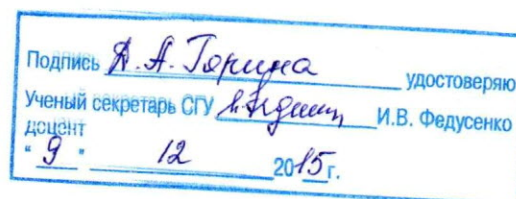 Подпись Д.А. Горина удостоверяю
Ученый секретарь СГУ И.В. Федусенко
доцент
"9" 12 2015г.